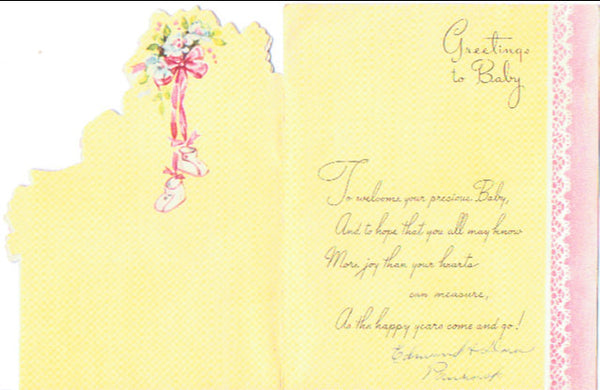 Greetings
to Baby
To welcome your precious Baby,
And to hope that you all may know
More joy than your hearts
can measure,
As the happy years come and go!
Edmund